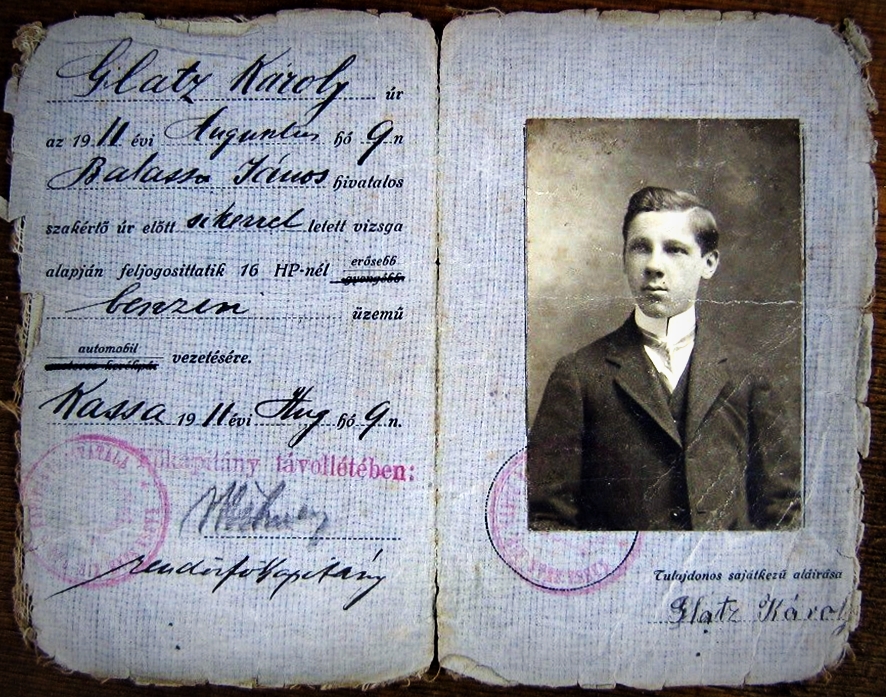 Glatz Károly úr
az 1911 évi Augusztus hó 9n
Balassa János hivatalos
szakértő úr előtt sikerrel letett vizsga
alapján feljogosittatik 16 HP-nél erősebb
gyengébb
benzin üzemű
automobil
motoros kerékpár vezetésére.
Kassa 1911 évi Aug hó 9n.
Főkapitány távollétében:
rendőrfőkapitány
Tulajdonos sajátkezű aláirása
Glatz Károly